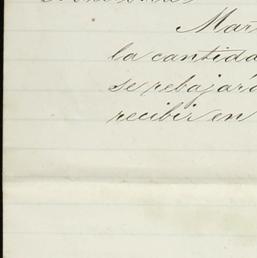 Mar
la cantida
se rebajará
recibir en